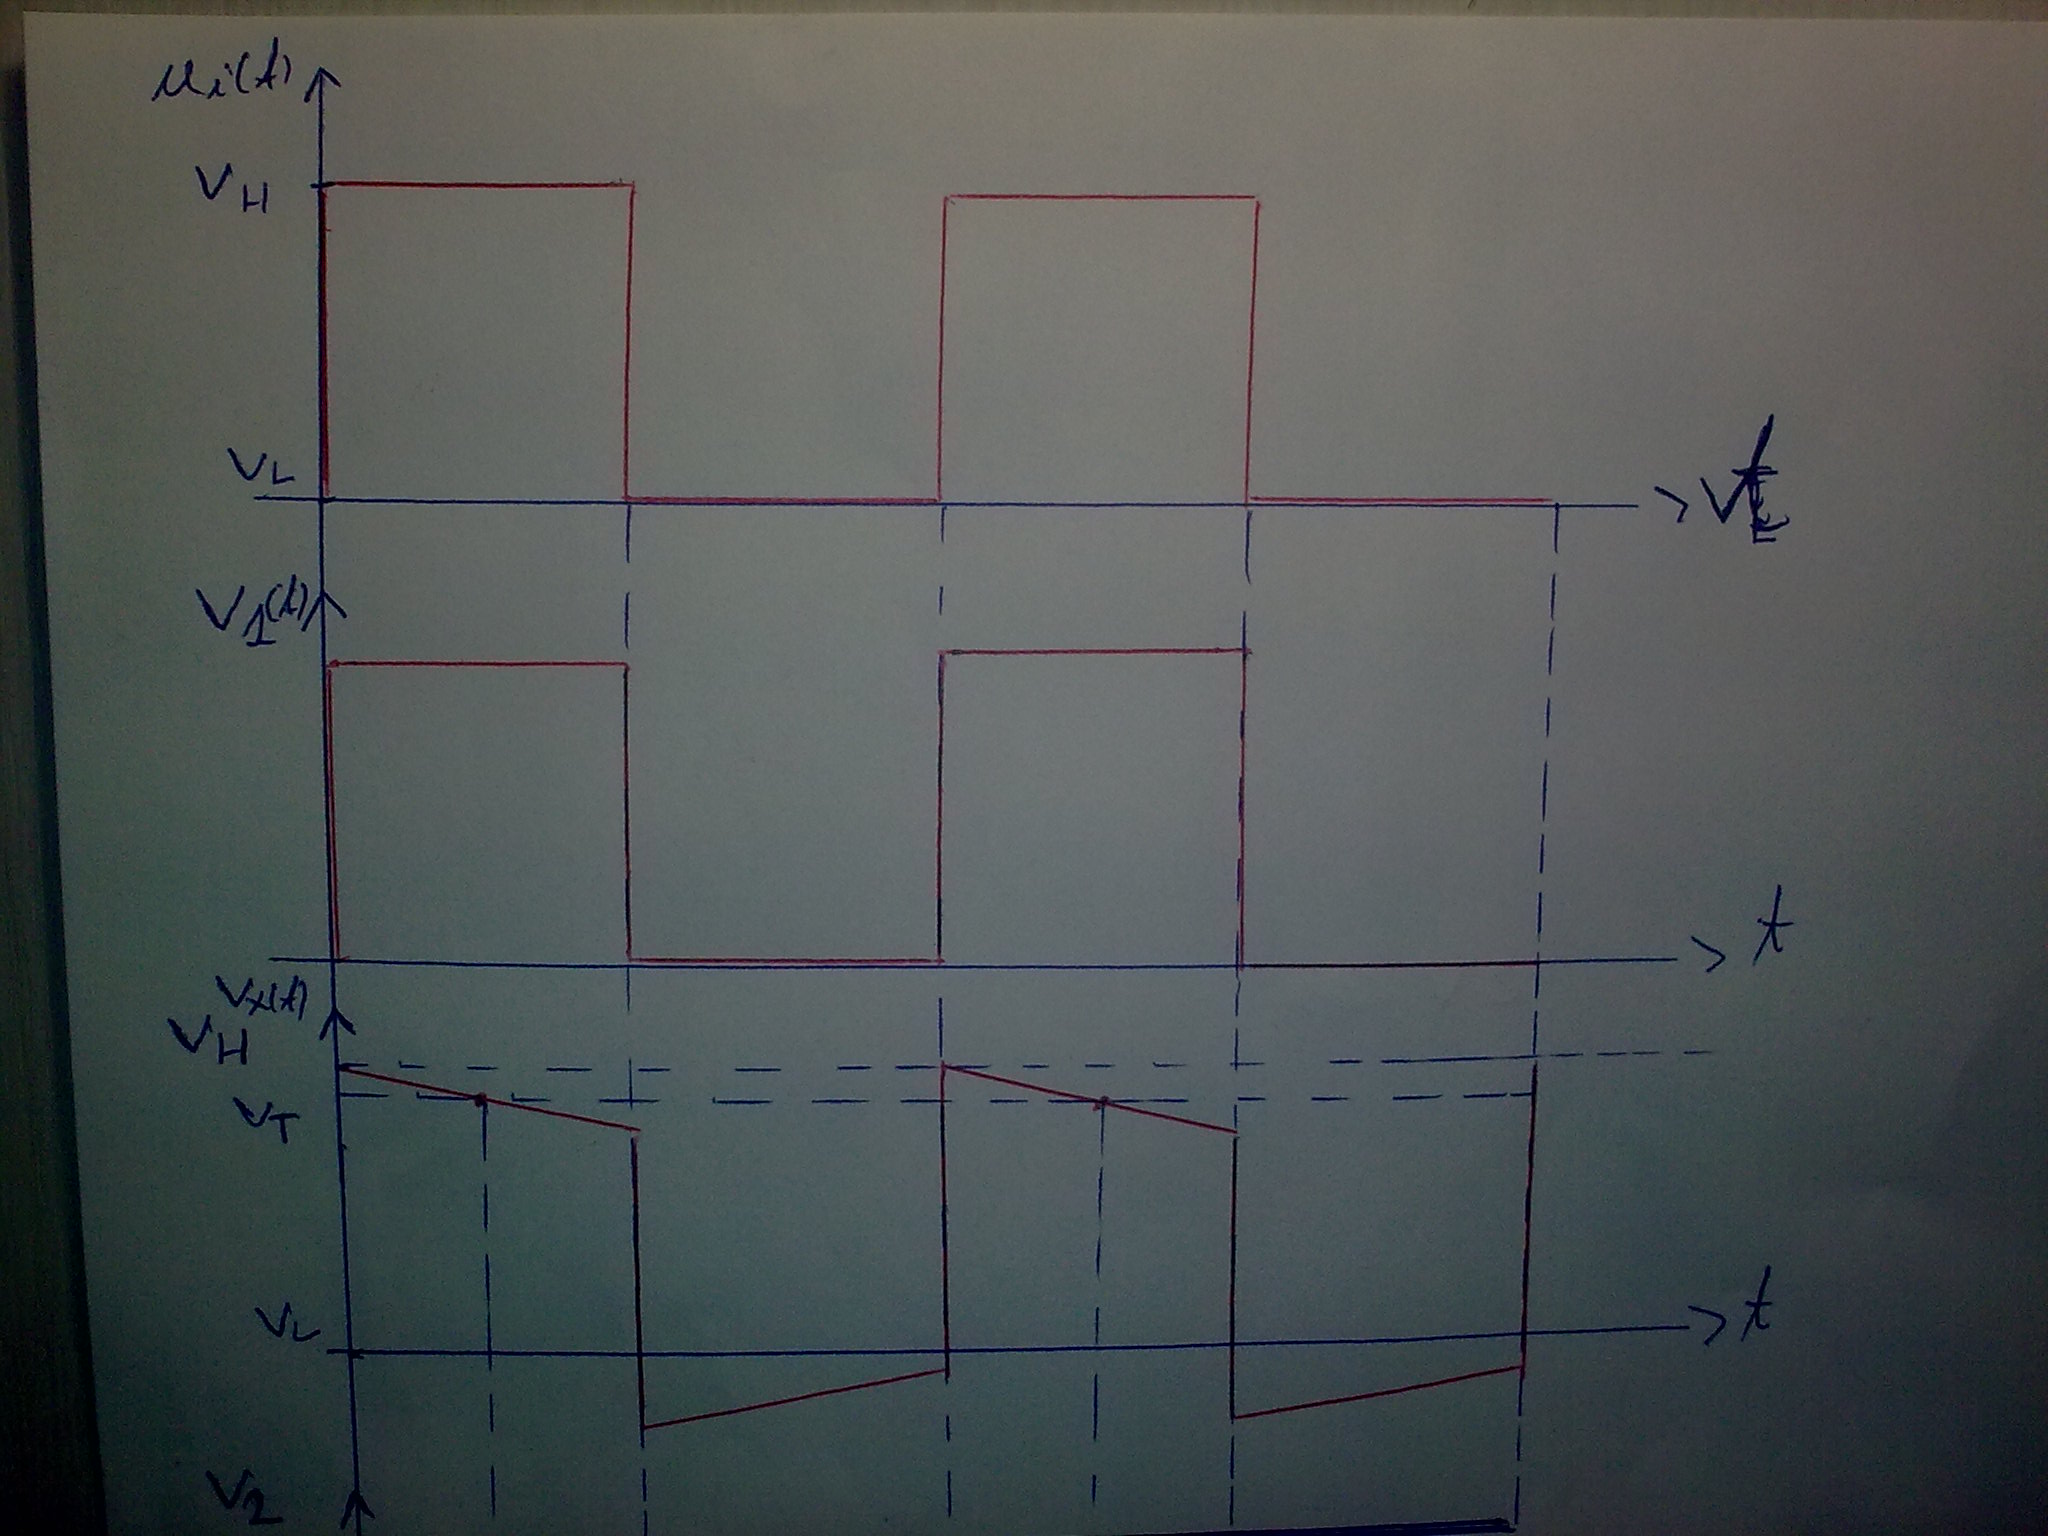 ui(t)
VH
VL
t
V1(t)
t
Vx(t)
VH
VT
VL
t
V2